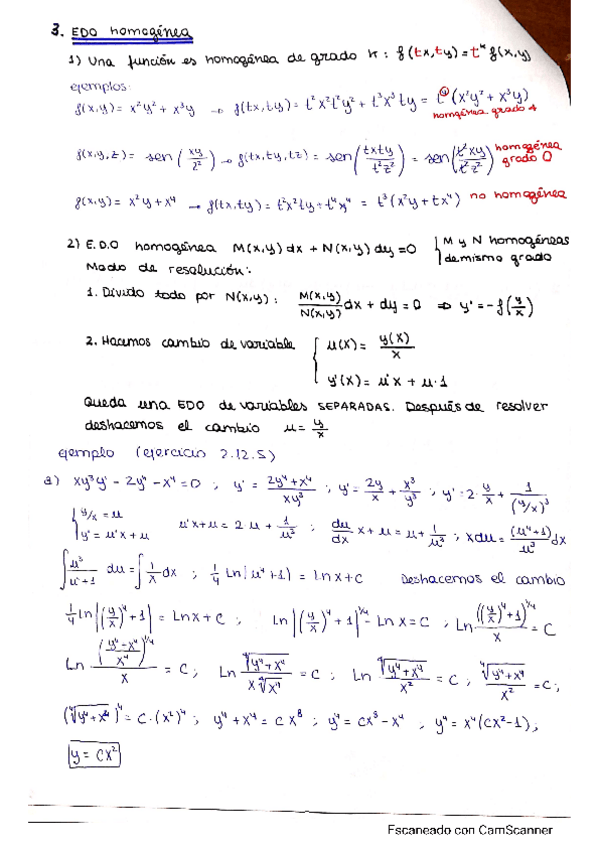 3. EDO homogénea
1) Una función es homogénea de grado k : f(tx,ty) = t^k f(x,y)
ejemplos:
f(x,y) = x²y² + x³y → f(tx,ty) = t²x²t²y² + t³x³ty = t⁴(x²y² + x³y)
homogénea grado 4
f(x,y,z) = sen(xy/z²) → f(tx,ty,tz) = sen(txty/t²z²) = sen(t²xy/t²z²) homogénea grado 0
f(x,y) = x²y + x⁴ → f(tx,ty) = t²x²ty + t⁴x⁴ = t³(x²y + tx⁴) no homogénea
2) E.D.O homogénea M(x,y)dx + N(x,y)dy = 0 { M y N homogéneas de mismo grado
Modo de resolución:
1. Divido todo por N(x,y) : M(x,y)/N(x,y) dx + dy = 0 ⇒ y' = -f(y/x)
2. Hacemos cambio de variable { u(x) = y(x)/x
y'(x) = u'x + u·1
Queda una EDO de variables SEPARADAS. Después de resolver
deshacemos el cambio u = y/x
ejemplo (ejercicio 2.12.5)
a) xy³y' - 2y⁴ - x⁴ = 0 ; y' = 2y⁴+x⁴/xy³ ; y' = 2y/x + x³/y³ ; y' = 2·y/x + 1/(y/x)³
{ y/x = u
y' = u'x + u u'x+u = 2u + 1/u³ ; du/dx x + u = u + 1/u³ ; xdu = (u⁴+1)/u³ dx
∫ u³/u⁴+1 du = ∫ 1/x dx ; 1/4 Ln|u⁴+1| = Lnx + C Deshacemos el cambio
1/4 Ln|(y/x)⁴+1| = Lnx + C ; Ln|(y/x)⁴+1|^1/4 - Lnx = C ; Ln ((y/x)⁴+1)^1/4/x = C
Ln (y⁴-x⁴/x⁴)^1/4/x = C ; Ln ⁴√y⁴+x⁴/x ⁴√x⁴ = C ; Ln ⁴√y⁴+x⁴/x² = C ; ⁴√y⁴+x⁴/x² = C ;
(⁴√y⁴+x⁴)⁴ = C·(x²)⁴ ; y⁴+x⁴ = Cx⁸ ; y⁴ = Cx⁸-x⁴ ; y⁴ = x⁴(Cx²-1) ;
y = Cx²
Escaneado con CamScanner